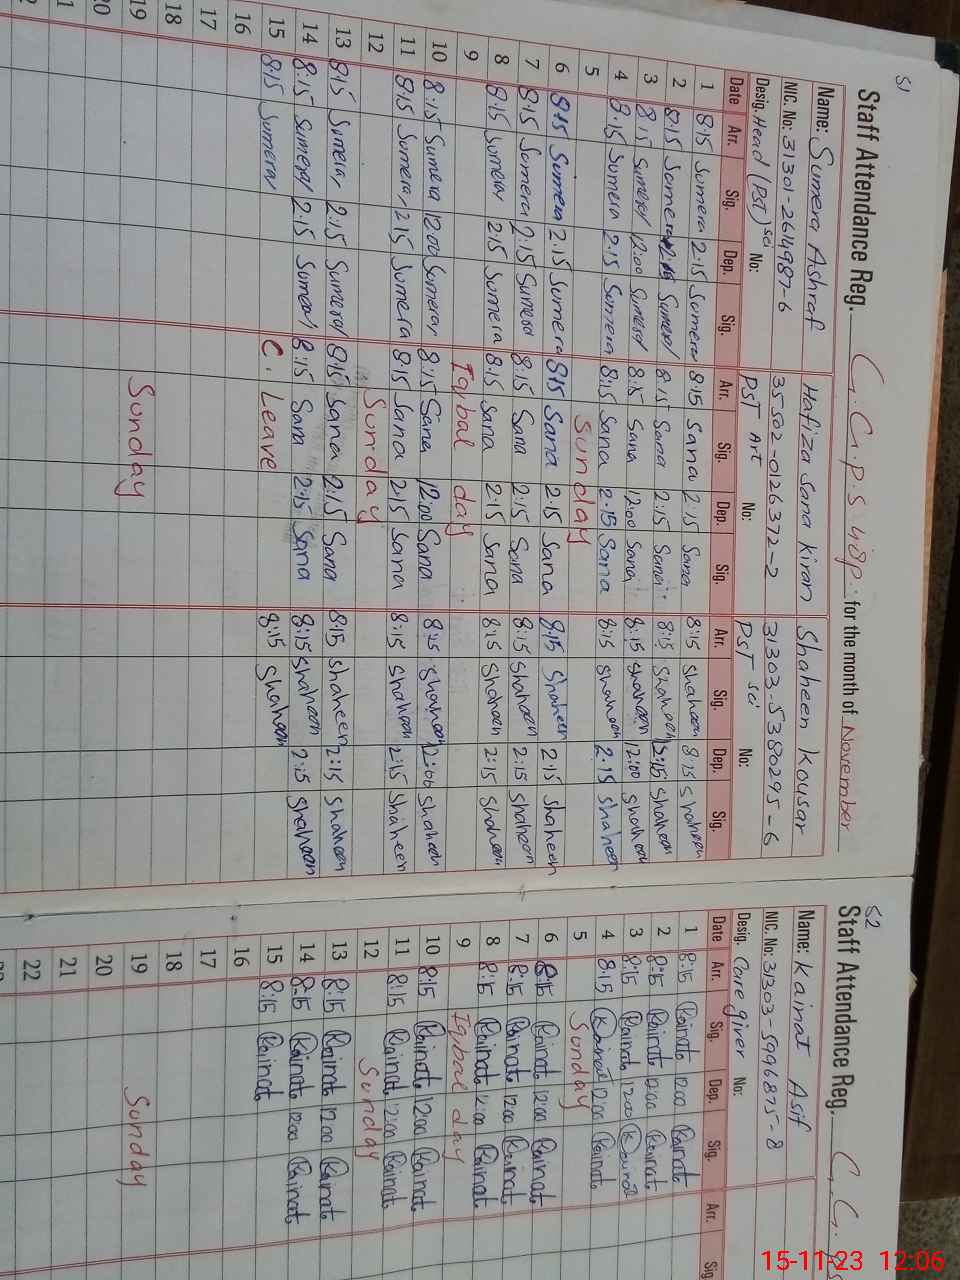 51
Staff Attendance Reg. G.G.P.S 48P. for the month of November
Name: Sumera Ashraf Hafiza Sana Kiran Shaheen Kousar
NIC. No: 31301-2614987-6 35502-0126372-2 31303-5380295-6
Desig. Head (PST) Sci No: PST Art No: PST Sci No:
Date Arr. Sig. Dep. Sig. Arr. Sig. Dep. Sig. Arr. Sig. Dep. Sig.
1 8:15 Sumera 2:15 Sumera 8:15 Sana 2:15 Sana 8:15 Shaheen 8:15 Shaheen
2 8:15 Sumera Sumera 8:15 Sana 2:15 Sana 8:15 Shaheen 2:15 Shaheen
3 8:15 Sumera 12:00 Sumera 8:15 Sana 12:00 Sana 8:15 Shaheen 12:00 Shaheen
4 8:15 Sumera 2:15 Sumera 8:15 Sana 2:15 Sana 8:15 Shaheen 2:15 Shaheen
5 Sunday
6 8:15 Sumera 2:15 Sumera 8:15 Sana 2:15 Sana 8:15 Shaheen 2:15 Shaheen
7 8:15 Sumera 2:15 Sumera 8:15 Sana 2:15 Sana 8:15 Shaheen 2:15 Shaheen
8 8:15 Sumera 2:15 Sumera 8:15 Sana 2:15 Sana 8:15 Shaheen 2:15 Shaheen
9 Iqbal day
10 8:15 Sumera 12:00 Sumera 8:15 Sana 12:00 Sana 8:15 Shaheen 12:00 Shaheen
11 8:15 Sumera 2:15 Sumera 8:15 Sana 2:15 Sana 8:15 Shaheen 2:15 Shaheen
12 Sunday
13 8:15 Sumera 2:15 Sumera 8:15 Sana 2:15 Sana 8:15 Shaheen 2:15 Shaheen
14 8:15 Sumera 2:15 Sumera 8:15 Sana 2:15 Sana 8:15 Shaheen 2:15 Shaheen
15 8:15 Sumera C. Leave 8:15 Shaheen
16
17
18
19 Sunday
20
52
Staff Attendance Reg. G.G.P.S
Name: Kainat Asif
NIC. No: 31303-5996875-8
Desig. Care giver No:
Date Arr. Sig. Dep. Sig. Arr. Sig
1 8:15 Kainat 12:00 Kainat
2 8:15 Kainat 12:00 Kainat
3 8:15 Kainat 12:00 Kainat
4 8:15 Kainat 12:00 Kainat
5 Sunday
6 8:15 Kainat 12:00 Kainat
7 8:15 Kainat 12:00 Kainat
8 8:15 Kainat 12:00 Kainat
9 Iqbal day
10 8:15 Kainat 12:00 Kainat
11 8:15 Kainat 12:00 Kainat
12 Sunday
13 8:15 Kainat 12:00 Kainat
14 8:15 Kainat 12:00 Kainat
15 8:15 Kainat
16
17
18
19 Sunday
20
21
22
15-11-23 12:06